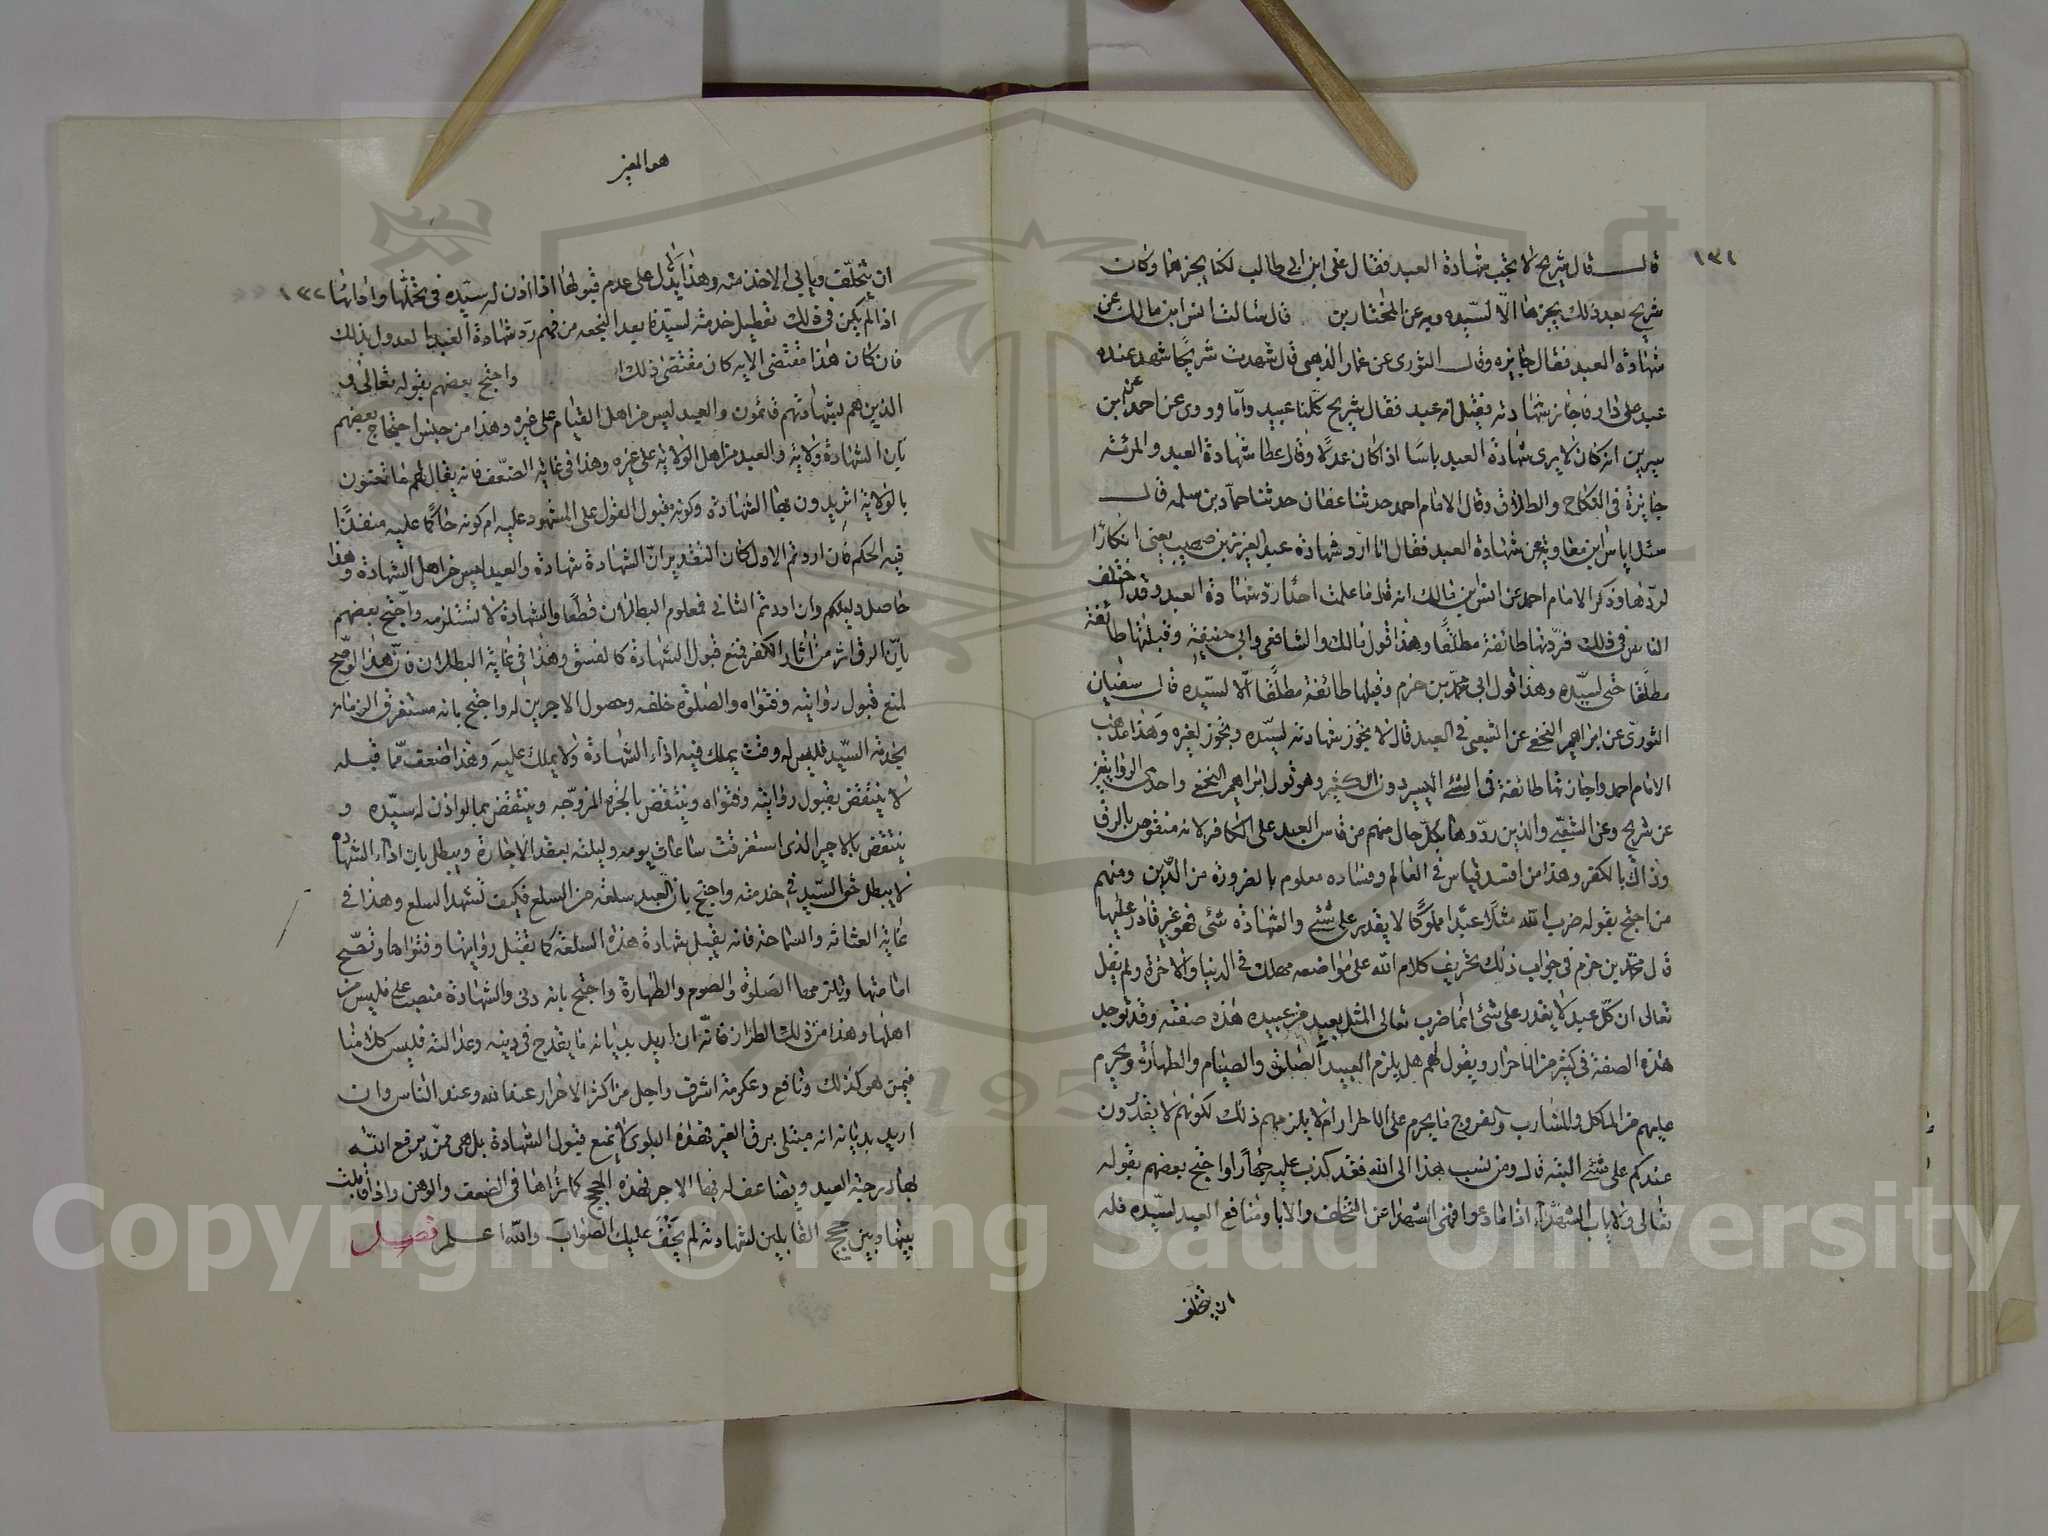 ١٣١
قال قال شريح لا نجيب شهادة العبد فقال علي ابن ابي طالب لكنا نجيزها وكان
شريح بعد ذلك يجيزها الا لسيده وبه عن المختار بن قال سئالت انس ابن مالك عن
شهادة العبد فقال جايزه وقال الثوري عن عمار الدهني قال شهدت شريحا شهد عنده
عبد على دار فاجاز شهادته فقيل انه عبد فقال شريح كلنا عبيد واما وروى عن احمد عن ابن
سيرين انه كان لا يرى شهادة العبد باسا اذا كان عدلا وقال عطا شهادة العبد والمرئة
جايزة في النكاح والطلاق وقال الامام احمد حدثنا عفان حدثنا حماد بن سلمه قال
سئل اياس ابن معاوية عن شهادة العبد فقال انا ارد شهادة عبد العزيز بن صهيب يعني انكارا
لردها وذكر الامام احمد عن انس بن مالك انه قال ما علمت احدا رد شهادة العبد وقد اختلف
الناس في ذلك فردتها طائفة مطلقا وهذا قول مالك والشافعي وابي حنيفة وقبلتها طائفة
مطلقا حتى لسيده وهذا قول ابي محمد بن حزم وقبلها طائفة مطلقا الا لسيده قال سفيان
الثوري عن ابراهيم النخعي عن الشعبي في العبد قال لا تجوز شهادته لسيده وتجوز لغيره وهذا مذهب
الامام احمد واجازتها طائفة في الشئ اليسير دون الكثير وهو قول ابراهيم النخعي واحدى الروايتين
عن شريح وعن الشعبي والذين ردوها بكل حال منهم من قاس العبد على الكافر لانه منقوص بالرق
وذاك بالكفر وهذا من افسد قياس في العالم وفساده معلوم بالضرورة من الدين ومنهم
من احتج بقوله ضرب الله مثلا عبدا مملوكا لا يقدر على شئ والشهادة شئ فهو غير قادر عليها
قال محمد بن حزم في جواب ذلك تحريف كلام الله على مواضعه مهلك في الدنيا والاخرة ولم يقل
تعالى ان كل عبد لا يقدر على شئ انما ضرب تعالى المثل بعبد من عبيده هذه صفته وقد توجد
هذه الصفة في كثير من الاحرار ويقول لهم هل يلزم العبيد الصلوة والصيام والطهارة ويحرم
عليهم من المأكل والمشارب والفروج ما يحرم على الاحرار ام لا يلزمهم ذلك لكونهم لا يقدرون
عندكم على شئ البته قال ومن نسب هذا الى الله فقد كذب عليه جهارا واحتج بعضهم بقوله
تعالى ولا ياب الشهداء اذا ما دعوا فنهى الشهدا عن التخلف والابا ومنافع العبد لسيده فله
ان يتخلف
هو المعين
١٣٢
ان يتخلف ويابى الا خدمته وهذا لا يدل على عدم قبولها اذا اذن له سيده في تحملها وادائها
اذا لم يكن في ذلك تعطيل خدمة لسيده بعد النجعه من فهم رد شهادة العبد العدول بذلك
فان كان هذا مقتضى الايه كان مقتضى ذلك واحتج بعضهم بقوله تعالى و
الذين هم بشهادتهم قائمون والعبد ليس من اهل القيام على غيره وهذا من جنس احتجاج بعضهم
بان الشهادة ولاية والعبد من اهل الولاية على غيره وهذا في غاية الضعف فانه يقال لهم ما تعنون
بالولاية اتريدون بها الشهادة وكونه مقبول القول على المشهود عليه ام كونه حاكما عليه منفذا
فيه الحكم فان اردتم الاول كان التقدير ان الشهادة شهادة والعبد ليس من اهل الشهادة وهذا
حاصل دليلكم وان اردتم الثاني فمعلوم البطلان قطعا والشهادة لا تستلزمه واحتج بعضهم
بان الرق اثر من اثار الكفر فمنع قبول الشهادة كالفسق وهذا في غاية البطلان فان هذا لو صح
لمنع قبول روايته وفتواه والصلوة خلفه وحصول الاجرين له واحتج بانه مستغرق الزمان
بخدمة السيد فليس له وقت يملك فيه اداء الشهادة ولا يملك عليه وهذا اضعف مما قبله
لا ينتقض بقبول روايته وفتواه وينتقض بالحره المزوجه وينتقض بما لو اذن له سيده و
ينتقض بالاجير الذي استغرقت ساعات يومه وليلته بعقد الاجارة ويبطل بان اداء الشهادة
لا يبطل حق السيد في خدمته واحتج بان العبد سلعة من السلع فكيف تشهد السلع وهذا في
غاية الغثاثه والسماجة فانه يقبل شهادة هذه السلعة كما تقبل روايتها وفتواها وتصح
امامتها ويلزمها الصلوة والصوم والطهارة واحتج بانه دنى والشهادة منصب على فليس من
اهلها وهذا من ذلك الطراز فانه ان اريد بدناته ما يقدح في دينه وعدالته فليس كلامنا
فيمن هو كذلك ونافع وعكرمة اشرف واجل من اكثر الاحرار عند الله وعند الناس وان
اريد بدناته انه مبتلى برق الغير فهذه البلوى لا تمنع قبول الشهادة بل هي ممن يرفع الله
بها درجة العبد ويضاعف له بها الاجر فهذه الحجج كما تراها في الضعف والوهن واذا قابلت
بينها وبين حجج القابلين لشهادته لم يخف عليك الصواب والله اعلم فصل
Copyright © King Saud University
1957